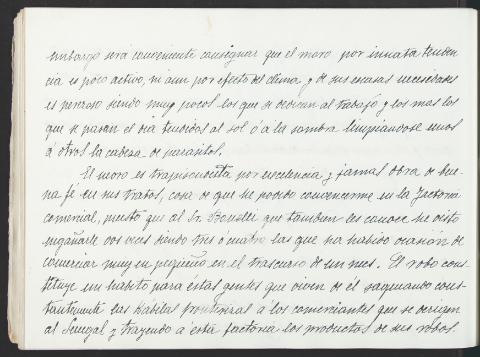 embargo será conveniente consignar que el moro por innata tenden-
cia es poco activo, ni aun por efecto del clima y de sus escasas necesidades
es perezoso siendo muy pocos los que se dedican al trabajo y los mas los
que se pasan el dia tendidos al sol ó á la sombra limpiandose unos
á otros la cabeza de parasitos.
El moro es trapisondista por escelencia y jamas obra de bue-
na fé en sus tratos, cosa de que he podido convencerme en la factoria
comercial, puesto que al Sr. que tambien les conoce he visto
engañarle dos veces siendo tres ó cuatro las que ha habido ocasión de
comerciar muy en pequeño en el trascurso de un mes. El robo cons-
tituye un habito para estas gentes que viven de él saqueando cons-
tantemente las kabilas á los comerciantes que se dirigen
al Senegal y trayendo á esta factoria los productos de sus robos.